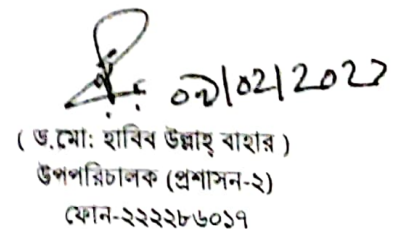 ( ড.মো: হাবিব উল্লাহ্ বাহার )
উপপরিচালক (প্রশাসন-২)
ফোন-২২২২৮৬০১৭